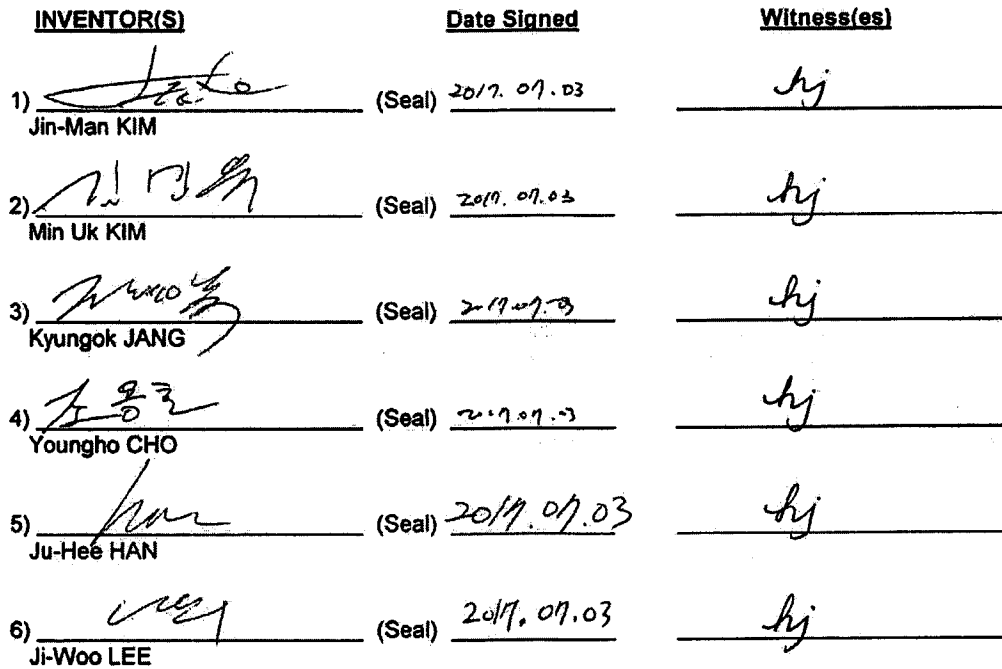 INVENTOR(S) Date Signed Witness(es)
1) (Seal) 2017. 07. 03 hj
Jin-Man KIM
2) 김민욱 (Seal) 2017. 07. 03 hj
Min Uk KIM
3) (Seal) 2017.07.03 hj
Kyungok JANG
4) (Seal) 2017.07.03 hj
Youngho CHO
5) han (Seal) 2017.07.03 hj
Ju-Hee HAN
6) (Seal) 2017. 07.03 hj
Ji-Woo LEE